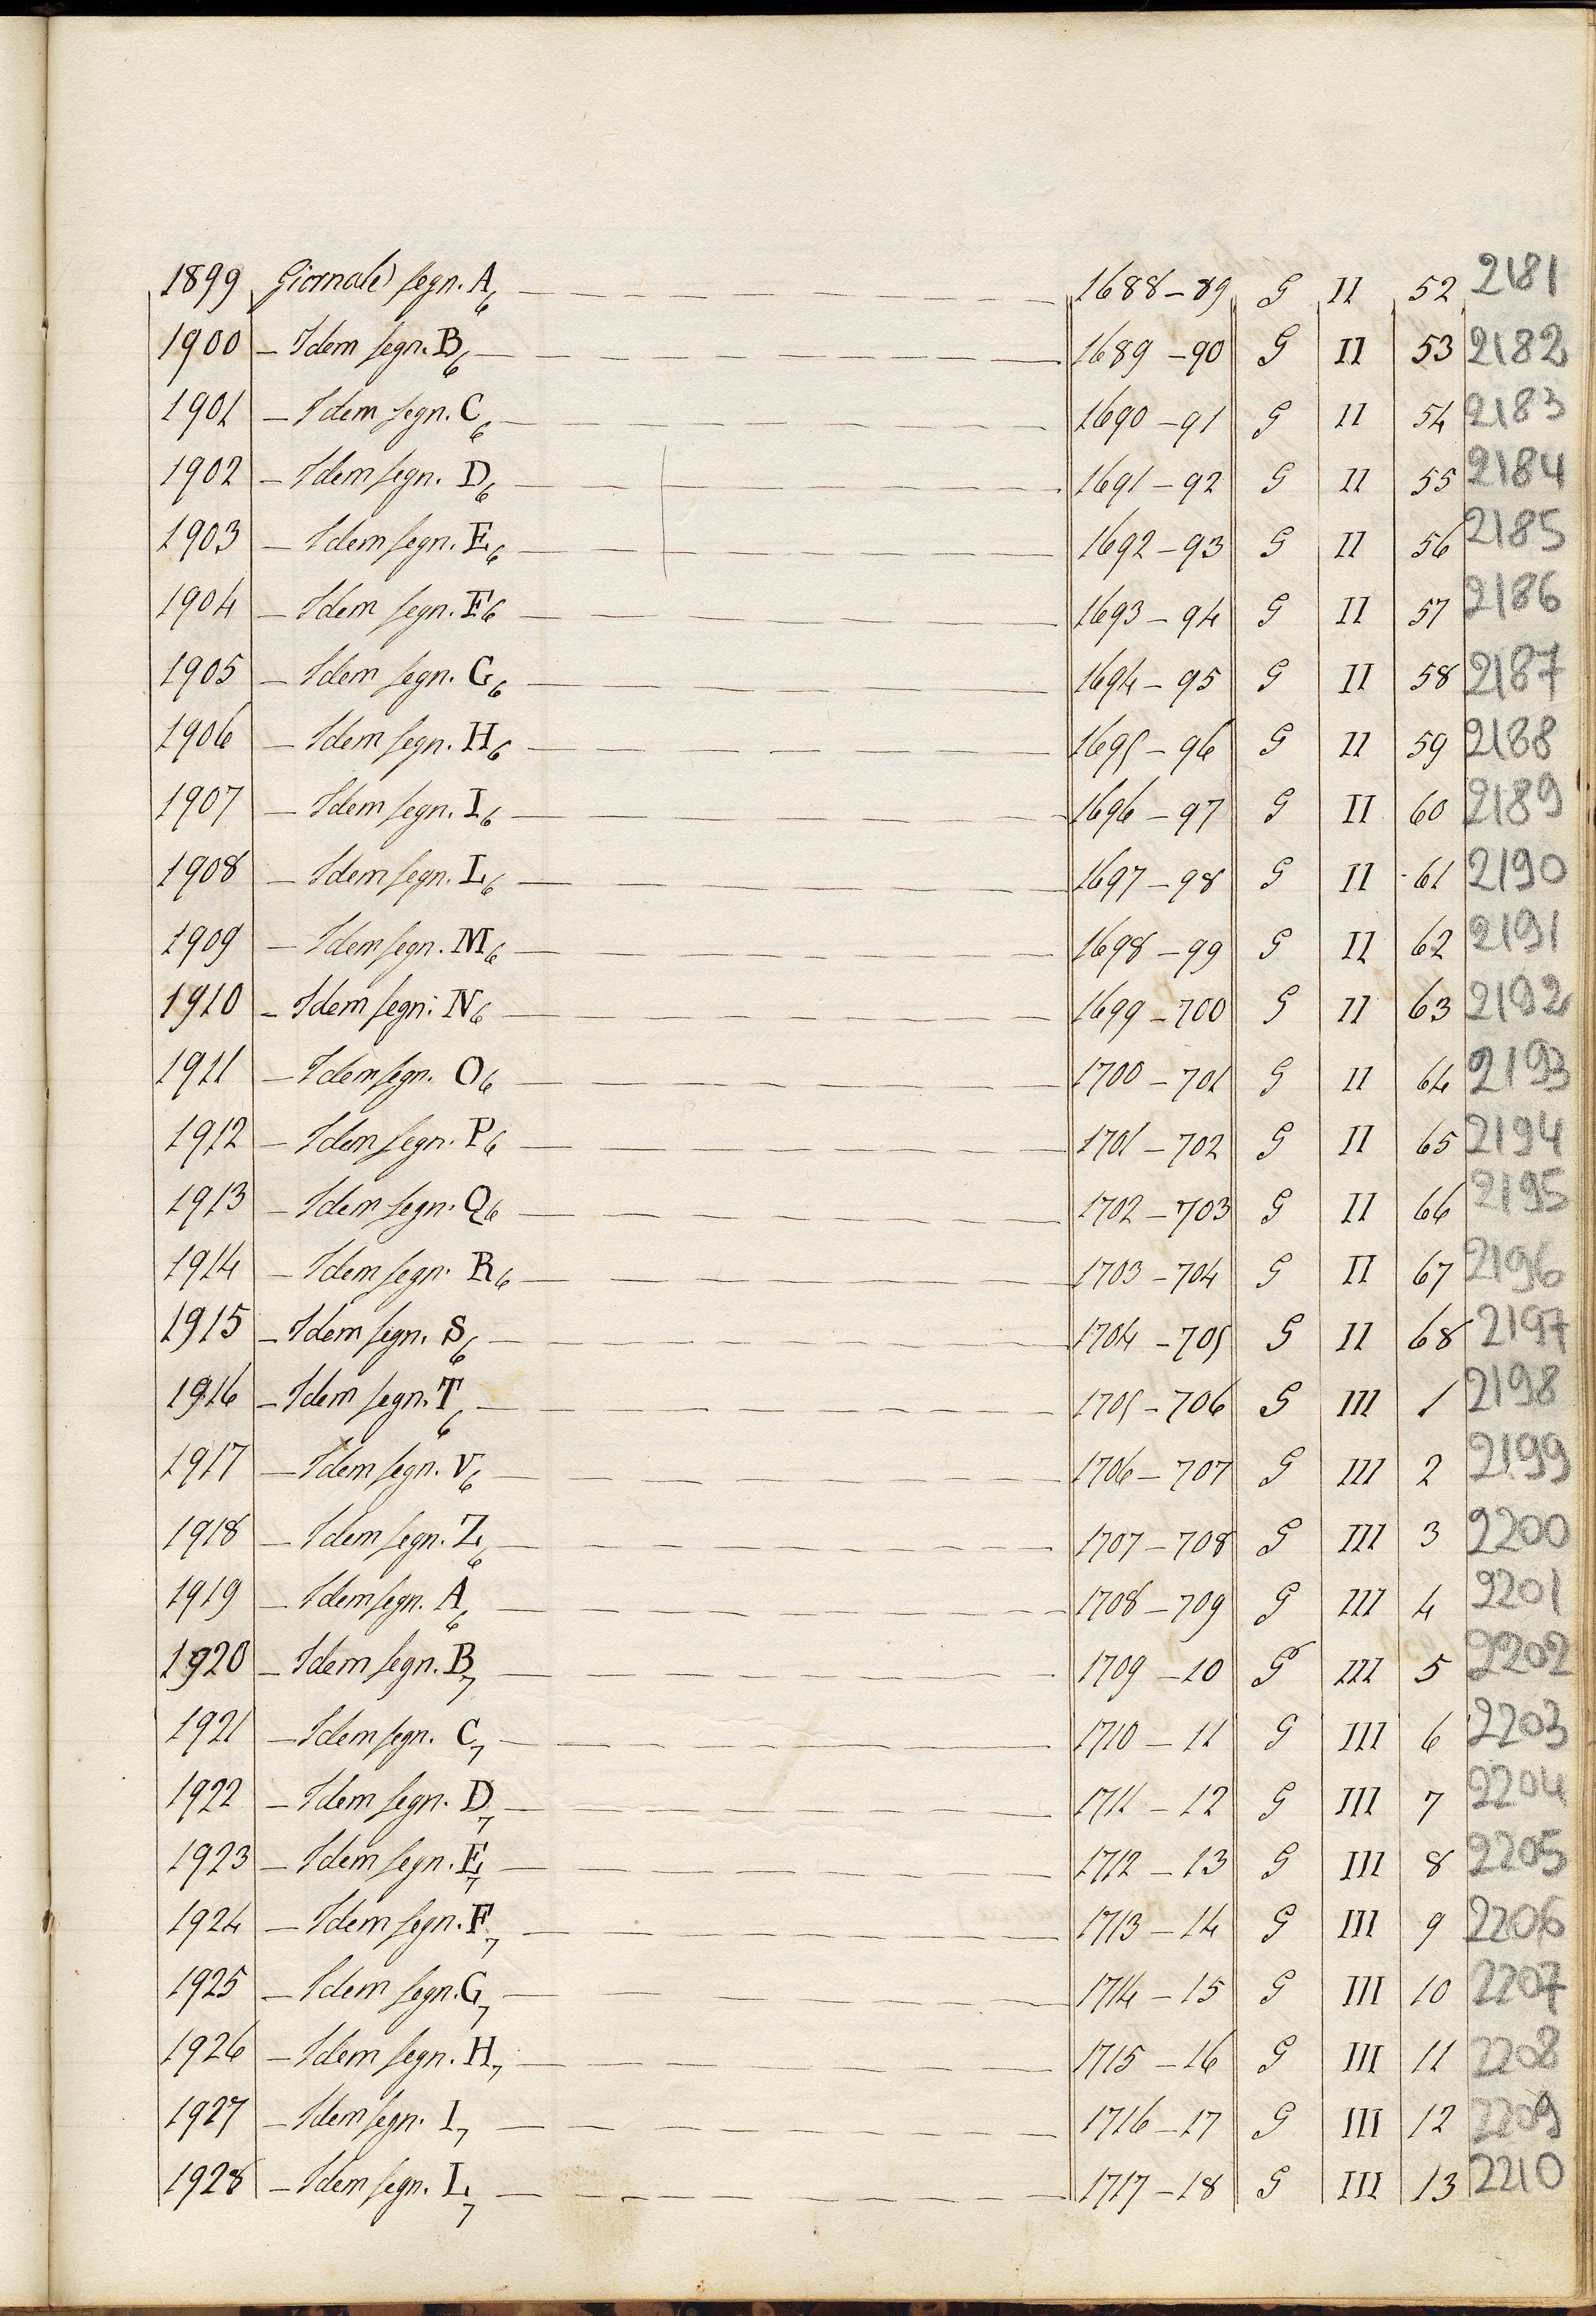 1899 Giornale segn. A6 1688-89 G II 52 2181
1900 - Idem segn. B6 1689-90 G II 53 2182
1901 - Idem segn. C6 1690-91 G II 54 2183
1902 - Idem segn. D6 1691-92 G II 55 2184
1903 - Idem segn. E6 1692-93 G II 56 2185
1904 - Idem segn. F6 1693-94 G II 57 2186
1905 - Idem segn. G6 1694-95 G II 58 2187
1906 - Idem segn. H6 1695-96 G II 59 2188
1907 - Idem segn. I6 1696-97 G II 60 2189
1908 - Idem segn. L6 1697-98 G II 61 2190
1909 - Idem segn. M6 1698-99 G II 62 2191
1910 - Idem segn. N6 1699-700 G II 63 2192
1911 - Idem segn. O6 1700-701 G II 64 2193
1912 - Idem segn. P6 1701-702 G II 65 2194
1913 - Idem segn. Q6 1702-703 G II 66 2195
1914 - Idem segn. R6 1703-704 G II 67 2196
1915 - Idem segn. S6 1704-705 G II 68 2197
1916 - Idem segn. T6 1705-706 G III 1 2198
1917 - Idem segn. V6 1706-707 G III 2 2199
1918 - Idem segn. Z6 1707-708 G III 3 2200
1919 - Idem segn. A6 1708-709 G III 4 2201
1920 - Idem segn. B7 1709-10 G III 5 2202
1921 - Idem segn. C7 1710-11 G III 6 2203
1922 - Idem segn. D7 1711-12 G III 7 2204
1923 - Idem segn. E7 1712-13 G III 8 2205
1924 - Idem segn. F7 1713-14 G III 9 2206
1925 - Idem segn. G7 1714-15 G III 10 2207
1926 - Idem segn. H7 1715-16 G III 11 2208
1927 - Idem segn. I7 1716-17 G III 12 2209
1928 - Idem segn. L7 1717-18 G III 13 2210